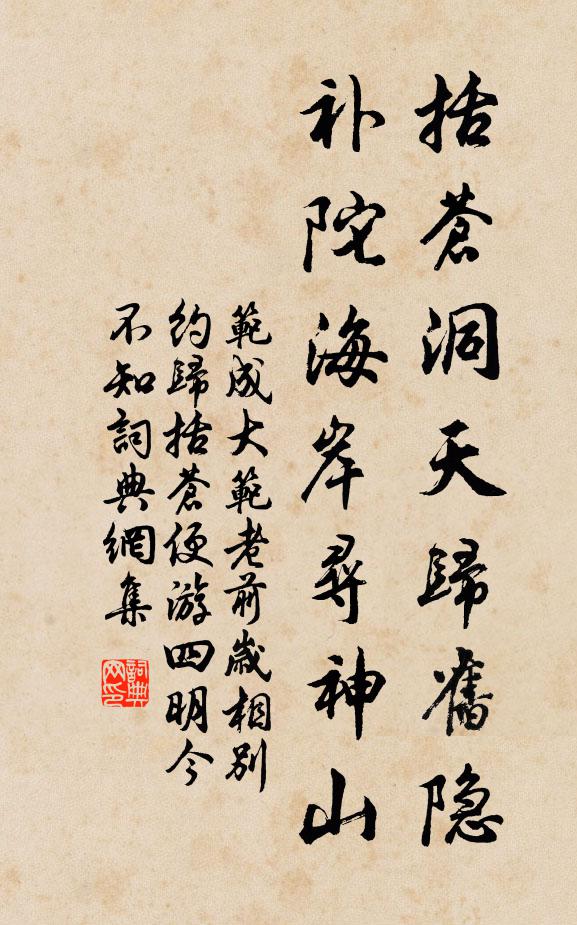 括蒼洞天歸舊隐
补陀海岸尋神山
範成大範老前歲相别
約歸括蒼便游四明今
不知詞典網集
詞典网印